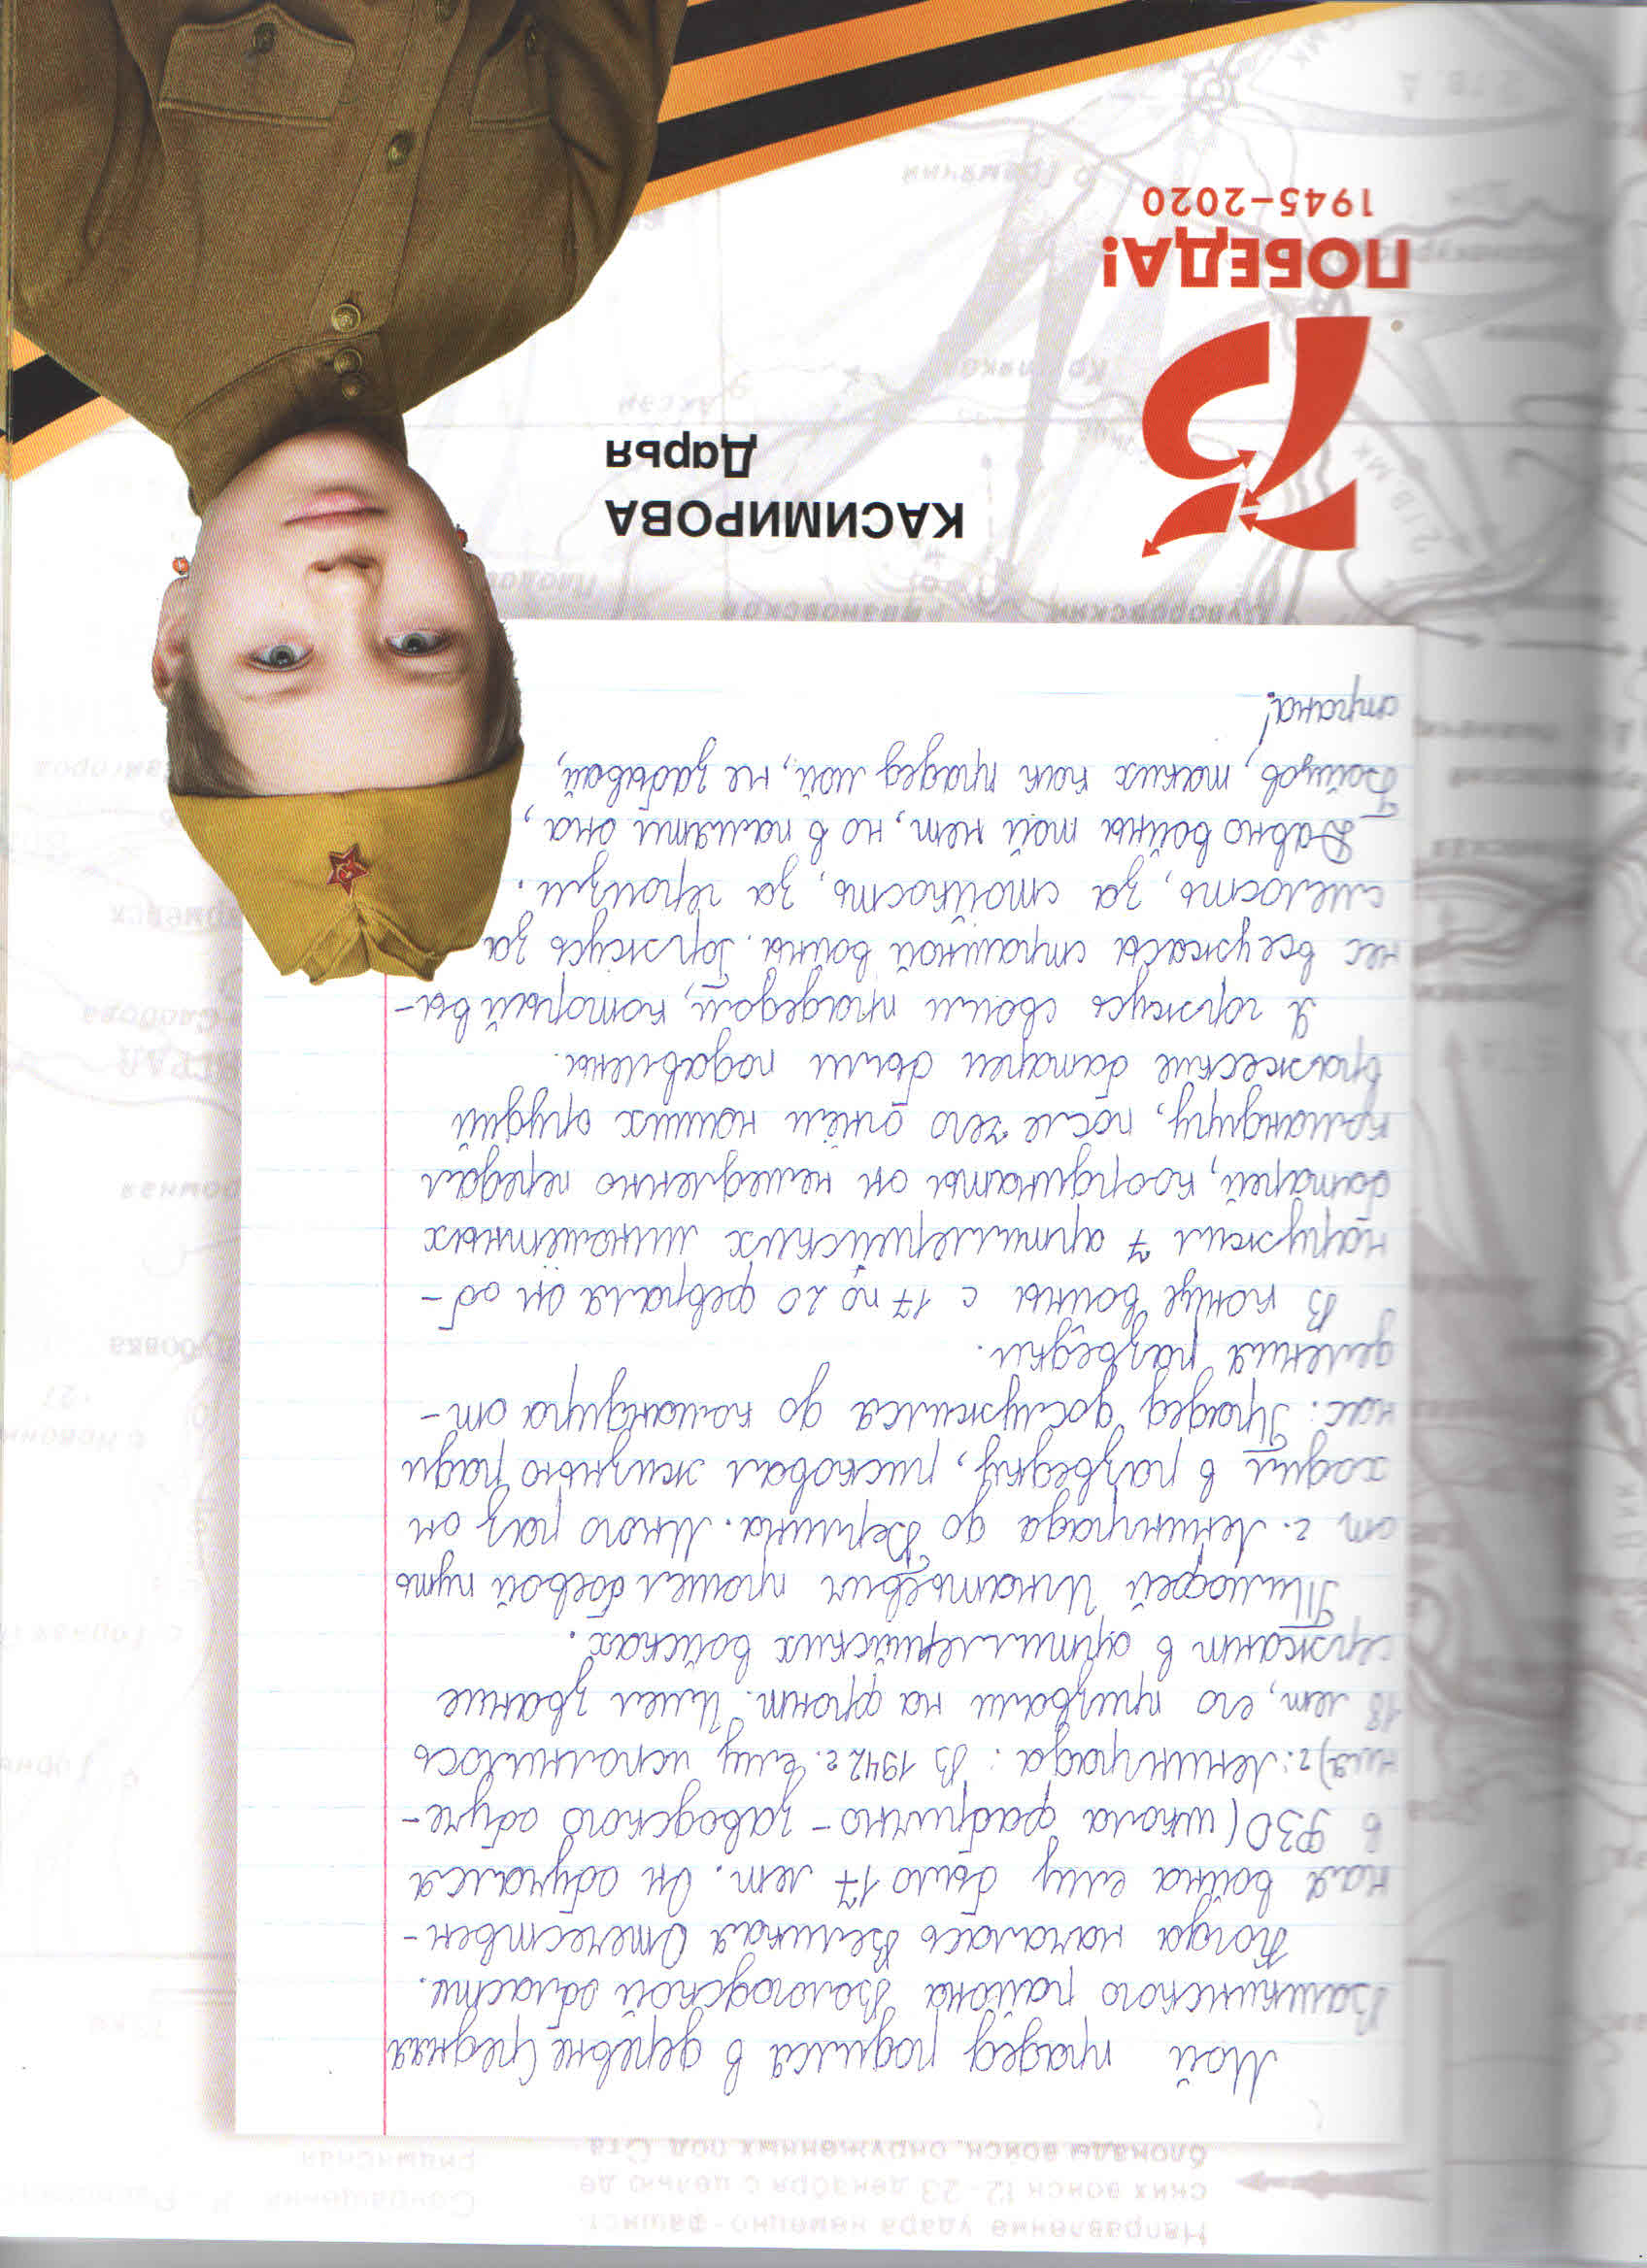 Направление удара немецко-фашист-
ских войск 12-23 декабря с целью де
блокады войск, окруженных под Ста
Мой прадед родился в деревне Средняя
Вашкинского района Вологодской области.
Когда началась Великая Отечествен-
ная война ему было 17 лет. Он обучался
в ФЗО (школа фабрично-заводского обуче-
ния) г. Ленинграда. В 1942 г. ему исполнилось
18 лет, его призвали на фронт. Имел звание
сержант в артиллерийских войсках.
Тимофей Игнатьевич прошел боевой путь
от г. Ленинграда до Берлина. Много раз он
ходил в разведку, рисковал жизнью ради
нас. Прадед дослужился до командира от-
деления разведки.
В конце войны с 17 по 20 февраля он об-
наружил 7 артиллерийских миномётных
батарей, координаты он немедленно передал
командиру, после чего огнём наших орудий
вражеские батареи были подавлены.
Я горжусь своим прадедом, который вы-
нес все ужасы страшной войны. Горжусь за
смелость, за стойкость, за героизм.
Давно войны той нет, но в памяти она,
Бойцов, таких как прадед мой, не забывай,
страна!
Дубовка
Слобода
Суворовский
КАСИМИРОВА
Дарья
Аксай
75
ПОБЕДА!
1945–2020
Гремячий